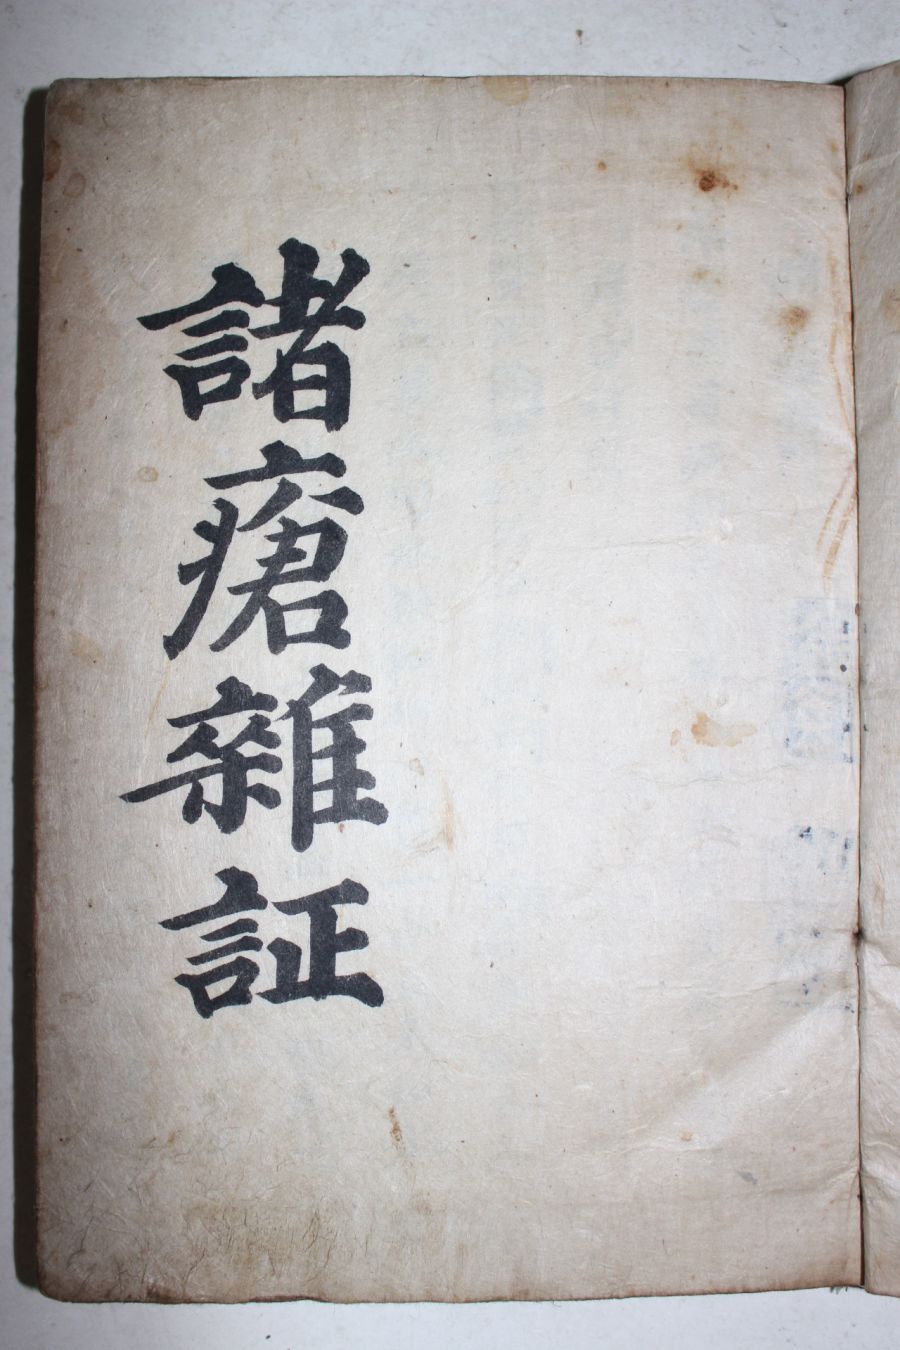 諸瘡雜証